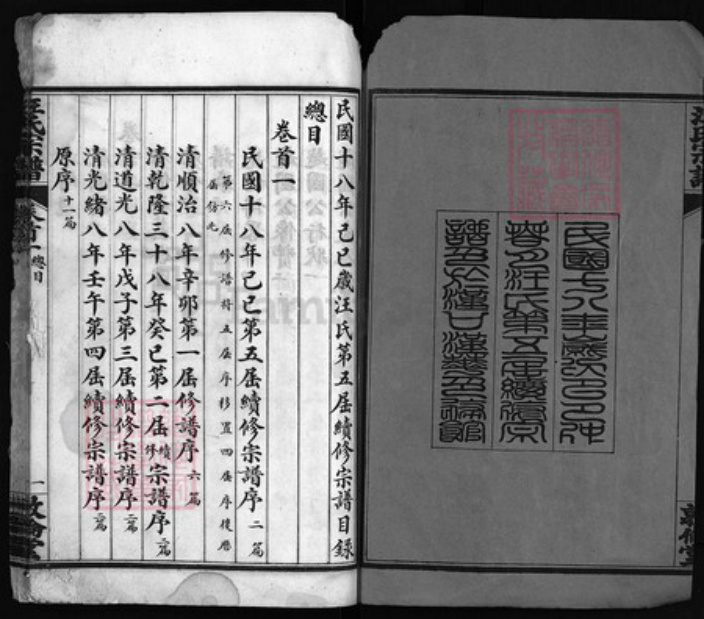 民國十八年歲次己巳仲
春月汪氏第五屆續修宗
譜至於漢口漢
民國十八年己巳歲汪氏第五屆續修宗譜目錄
總目
卷首一
民國十八年己巳第五屆續修宗譜序二篇
第六屆修譜將五屆序移置四屆序後歷
屆仿此
清順治八年辛卯第一屆修譜序六篇
清乾隆三十八年癸巳第二屆續修宗譜序二篇
清道光八年戊子第三屆續修宗譜序二篇
清光緒八年壬午第四屆續修宗譜序二篇
原序十一篇
汪氏宗譜
卷首一
總目
一
敦倫堂